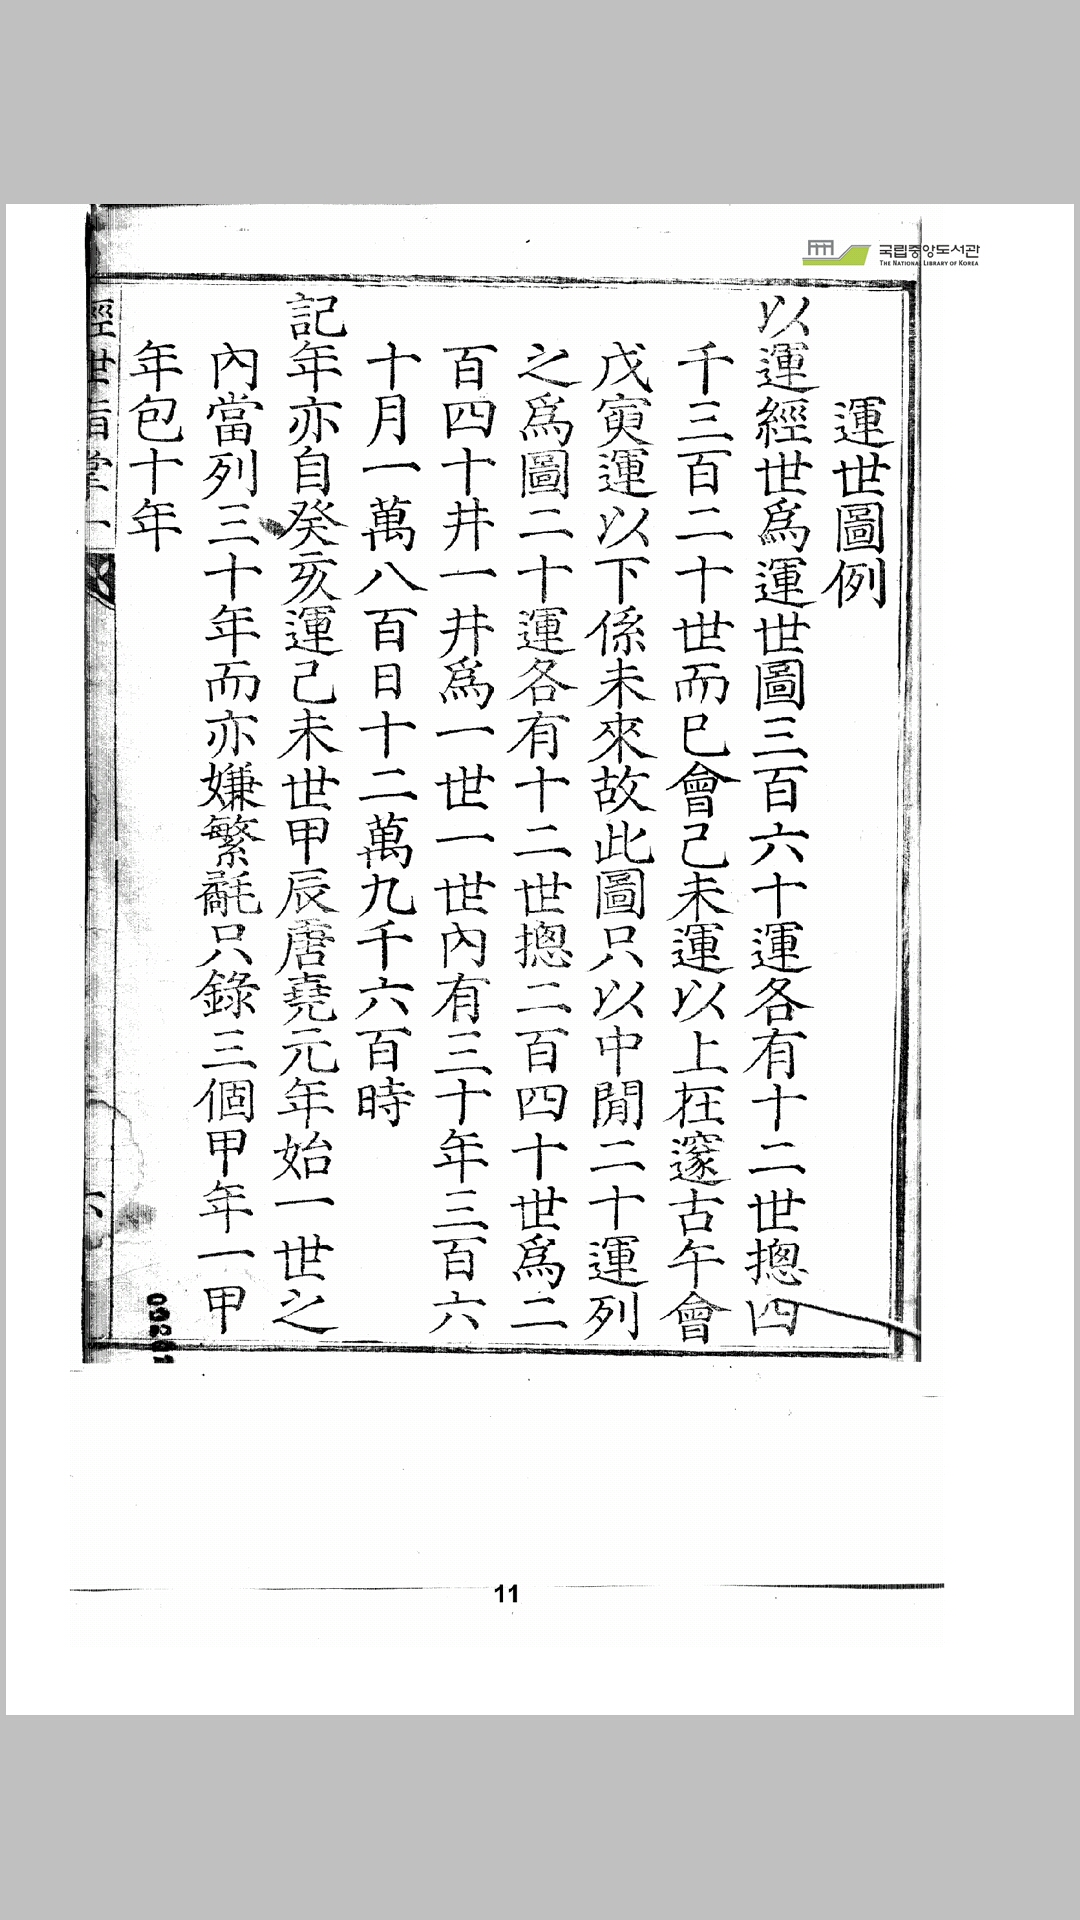 국립중앙도서관
THE NATIONAL LIBRARY OF KOREA
運世圖例
以運經世爲運世圖三百六十運各有十二世摠四
千三百二十世而巳會己未運以上在邃古午會
戊寅運以下係未來故此圖只以中間二十運列
之爲圖二十運各有十二世摠二百四十世爲二
百四十井一井爲一世一世內有三十年三百六
十月一萬八百日十二萬九千六百時
記年亦自癸亥運己未世甲辰唐堯元年始一世之
內當列三十年而亦嫌繁氄只錄三個甲年一甲
年包十年
經世指掌一
六
11